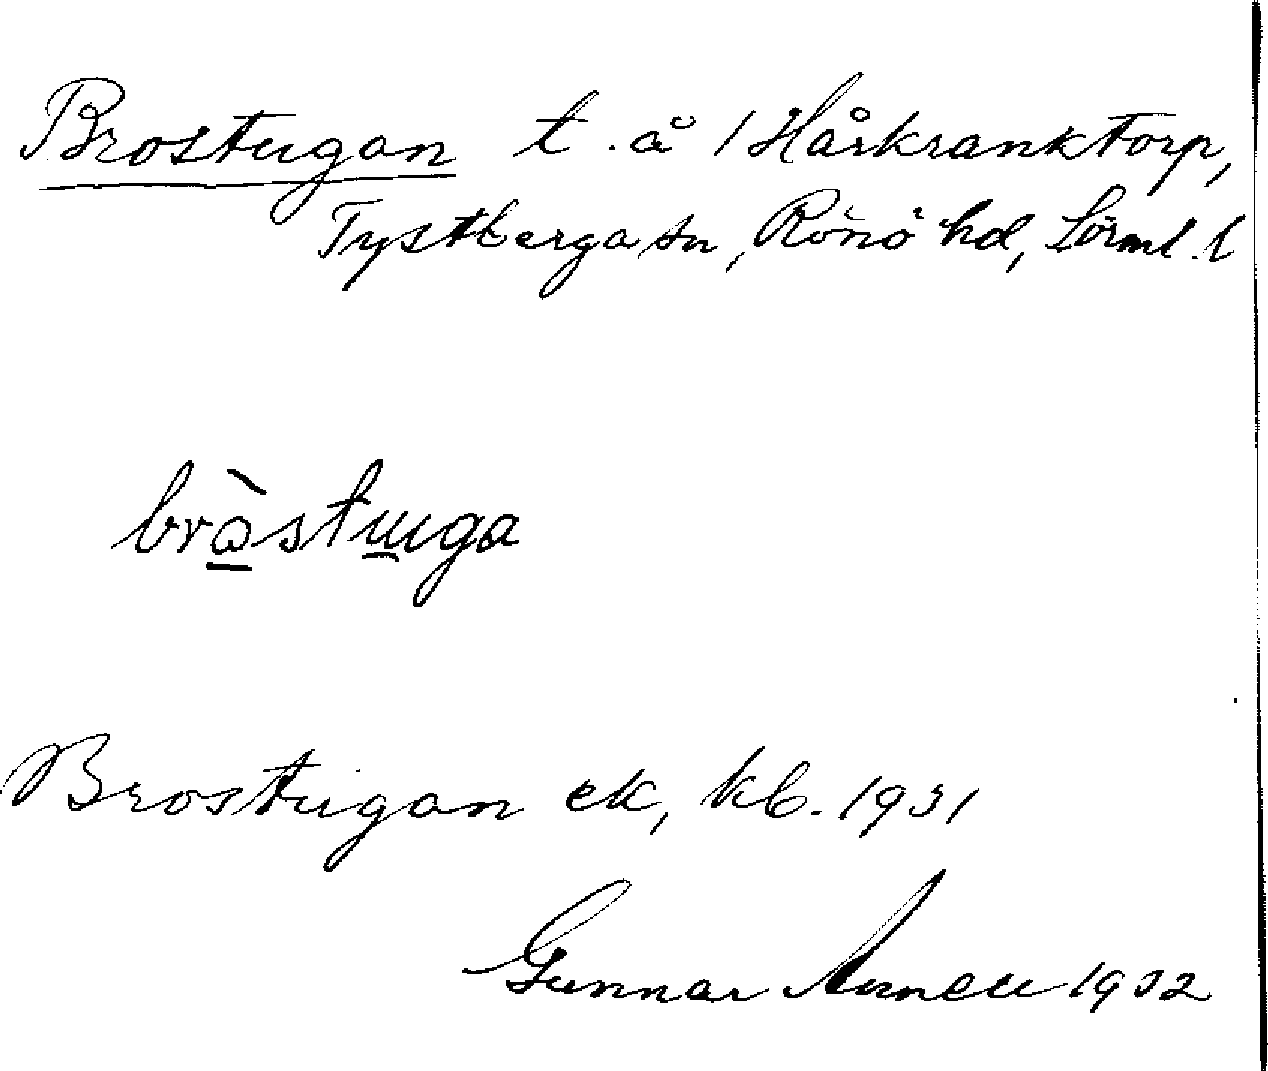 Brostugan t. å 1 Hårkranktorp,
Tystberga sn, Rönö hd, Sörml. l
bràstɯga
Brostugan ek, kb. 1931
Gunnar 1932